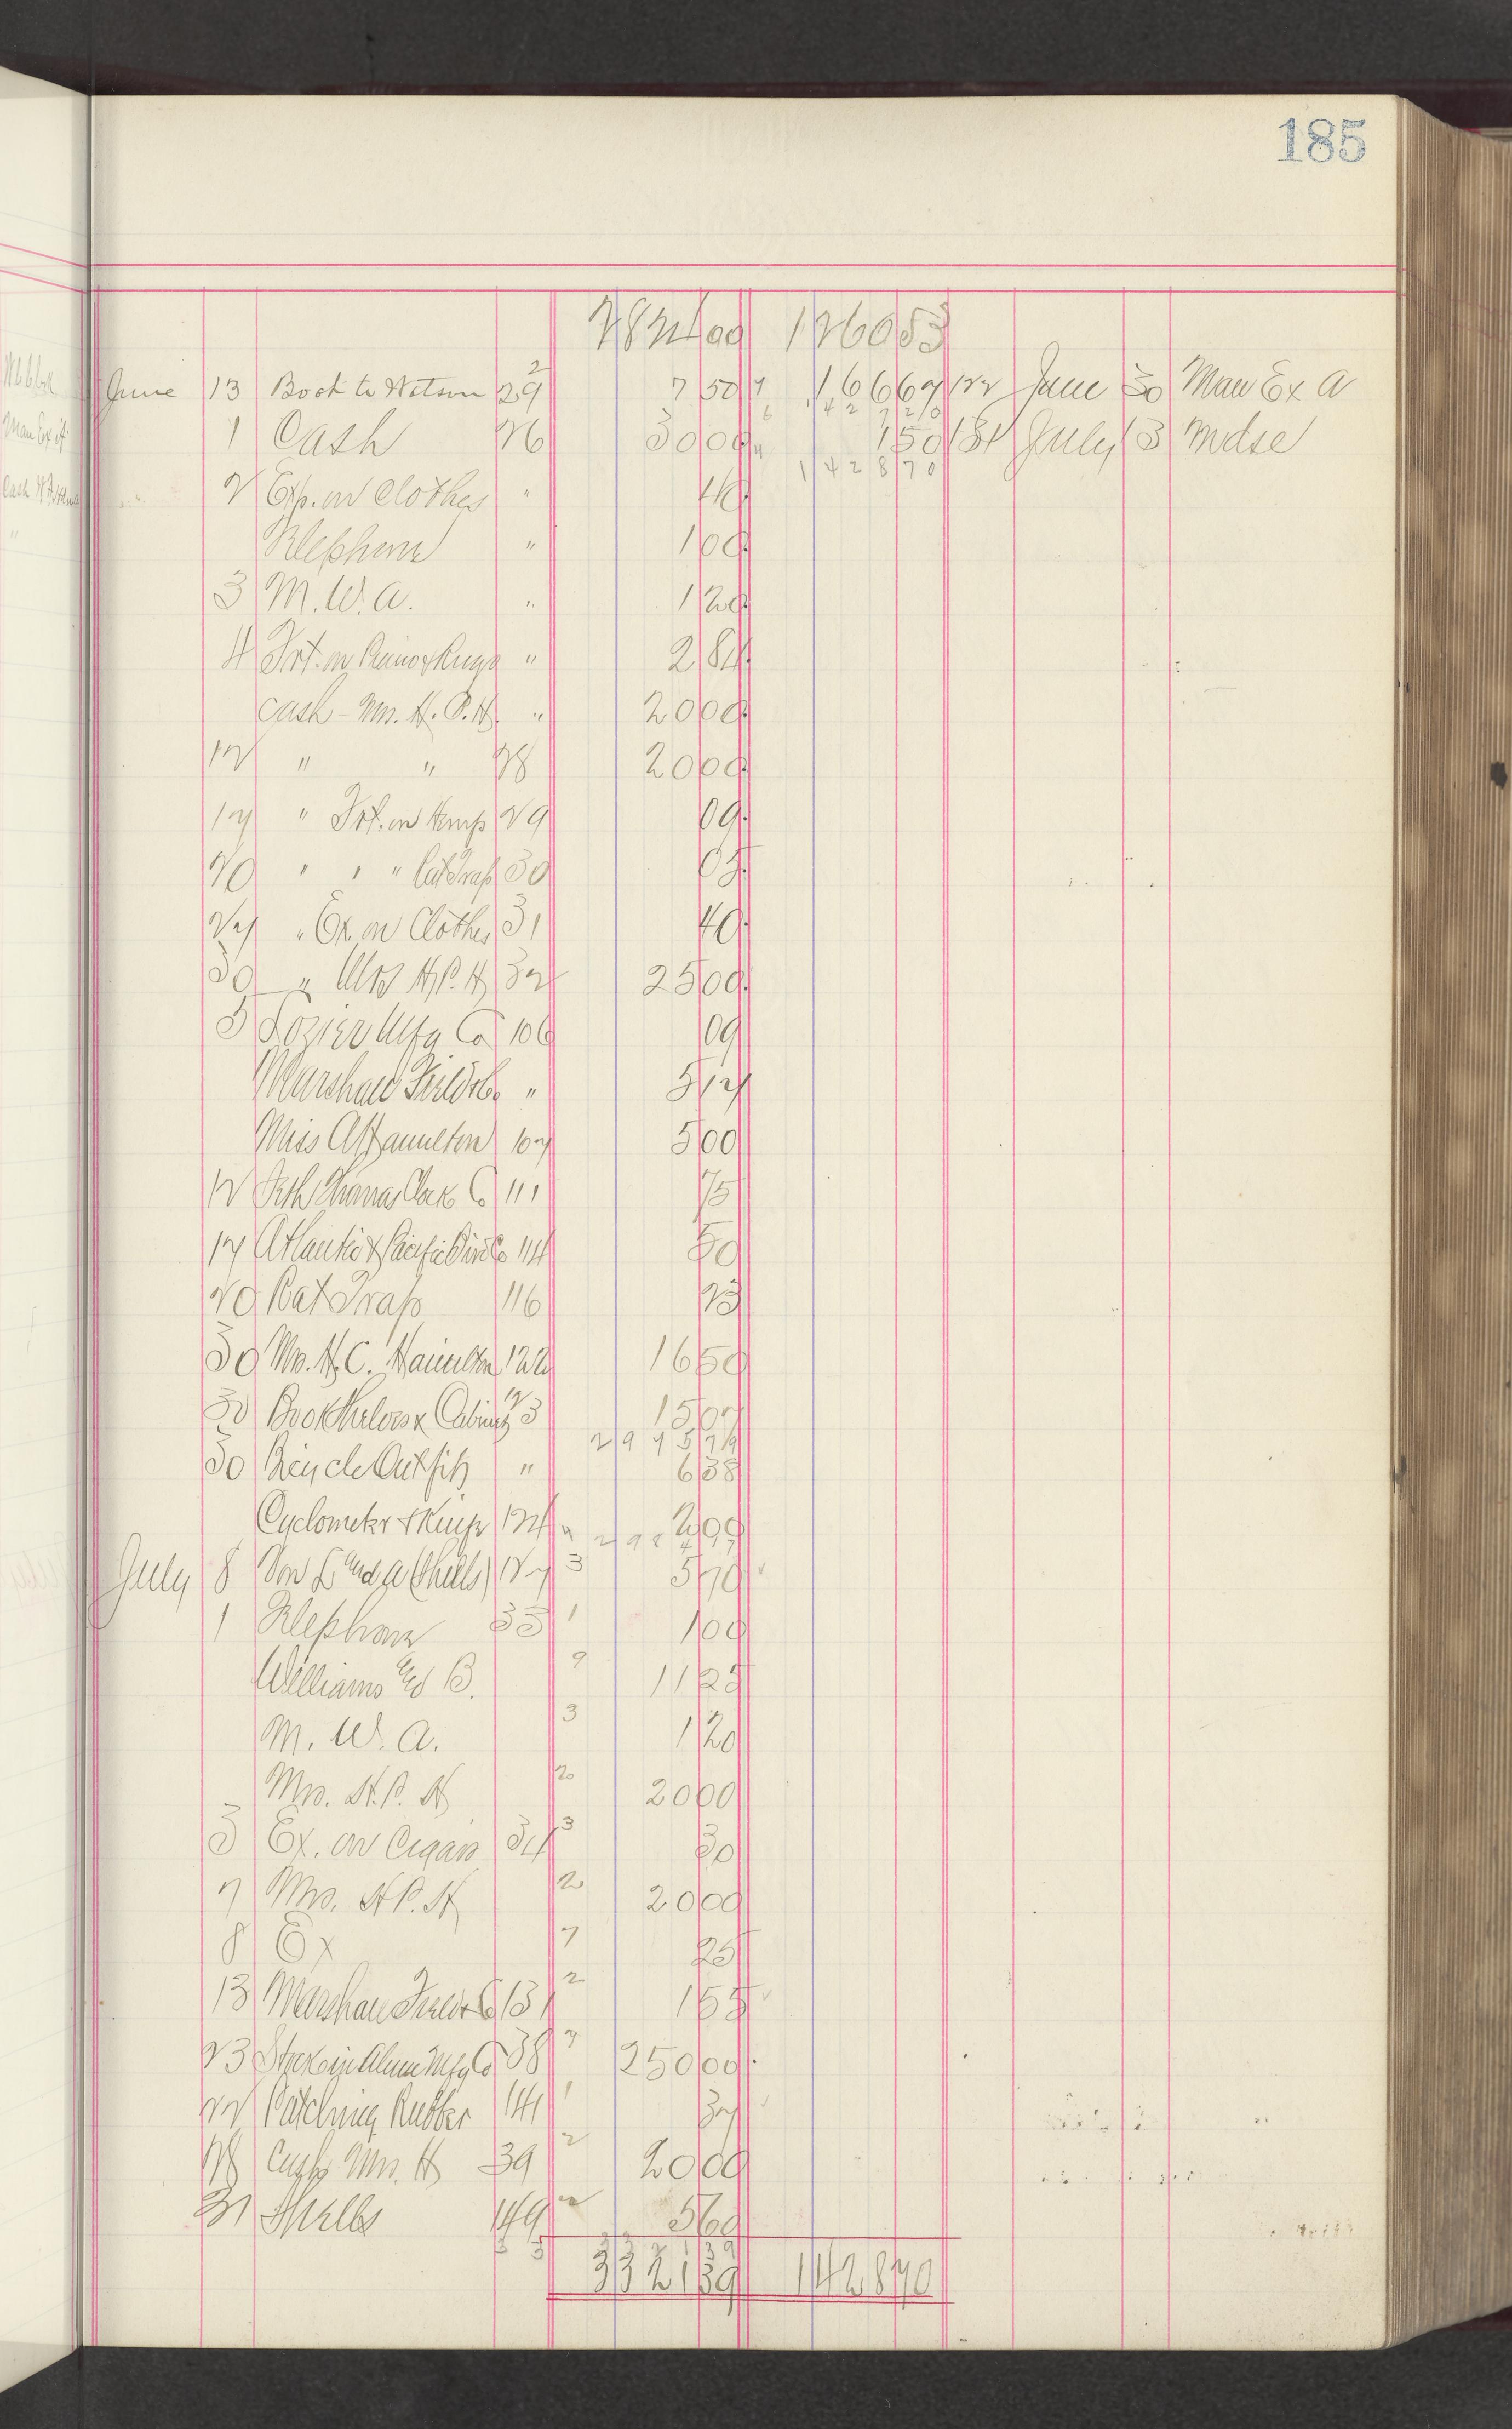 185
126053
June 13 Book to Watson 29 7 50 166 67 122 June 30 Man Ex A
1 Cash 26 30 00 1 50 131 July 3 Mdse
142870
2 Exp. on Clothes " 40
Telephone " 1 00
3 M. W. A. " 1 20
4 Frt. on Rugs " 2 84
Cash - Mrs. H. P. H. " 20 00
12 " " 28 20 00
17 " Frt. on 29 09
20 " " " 30 05
27 " Ex on Clothes 31 40
30 " Mrs H. P. H. 32 25 00
3 Lozier Mfg Co 106 09
Marshall Field & Co " 5 12
Miss A Hamilton 107 5 00
12 Seth Thomas Clock Co 111 75
17 Atlantic & Pacific Co 114 50
20 Rat Trap 116 25
30 Mr. H. C. Hamilton 122 16 50
30 Book Cabinet 123 15 07
30 Bicycle Outfits " 6 38
Cyclometer & 124 2 99
July 8 Von L and A (Shells) 127 5 70
1 Telephone 33 1 00
Williams Ed B. 11 25
M. W. A. 1 20
Mrs. H. P. H 20 00
3 Ex. on Cigars 34 30
7 Mrs. H P. H 20 00
8 Ex 25
13 Marshall Field & Co 131 1 55
23 Stock in Alum Mfg Co 38 250 00
22 Patching Rubber 141 37
28 Cash Mrs. H 39 20 00
31 Shells 149 5 60
3321 39 1428 70